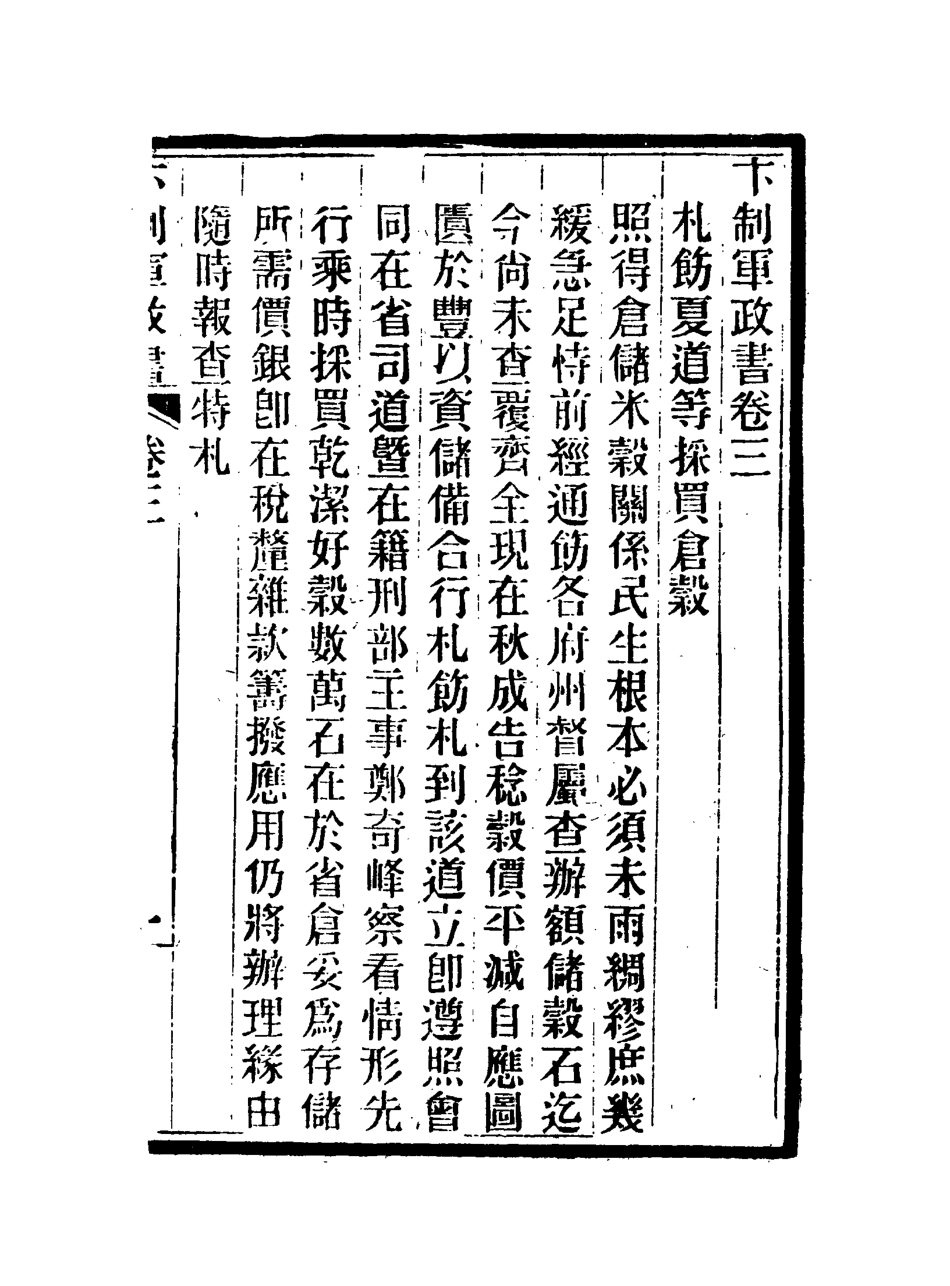 卞制軍政書卷三
札飭夏道等採買倉穀
照得倉儲米穀關係民生根本必須未雨綢繆庶幾
緩急足恃前經通飭各府州督屬查辦額儲穀石迄
今尚未查覆齊全現在秋成告稔穀價平減自應圖
匱於豐以資儲備合行札飭札到該道立卽遵照會
同在省司道曁在籍刑部主事鄭奇峰察看情形先
行乘時採買乾潔好穀數萬石在於省倉妥爲存儲
所需價銀卽在稅釐雜款籌撥應用仍將辦理緣由
隨時報查特札
卞制軍政書 卷三 一